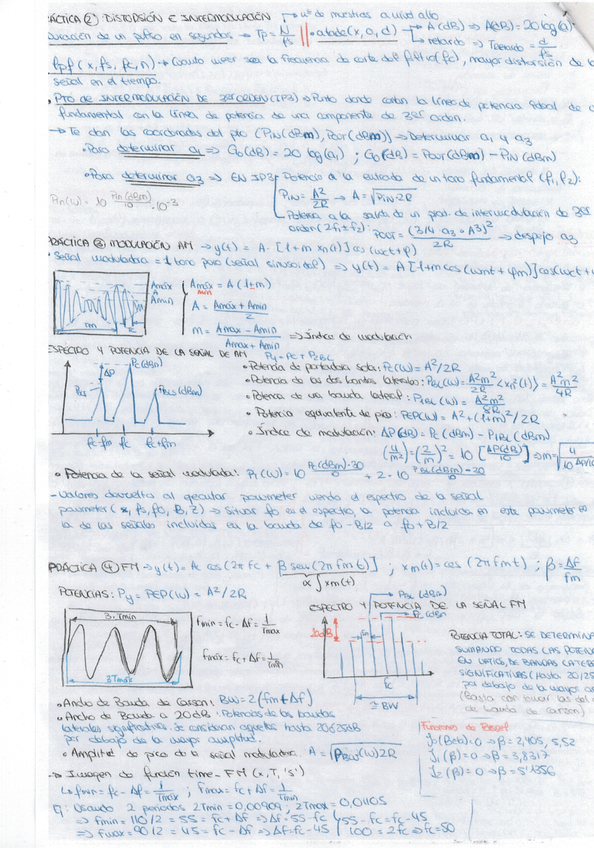 PRÁCTICA ② DISTORSIÓN E INTERMODULACIÓN → nº de muestras a nivel alto
Duración de un pulso en segundos → Tp = N/fs || • atade(x, a, d) → A(dB) ⇒ A(dB) = 20 log(a)
→ retardo ⇒ Tretardo = d/fs
fpf(x, fs, fc, n) → Cuanto menor sea la frecuencia de corte del filtro (fc), mayor distorsión de la
señal en el tiempo.
• PTO DE INTERMODULACIÓN DE 3ER ORDEN (IP3) → Punto donde cortan la línea de potencia
fundamental con la línea de potencia de una componente de 3er orden.
→ Te dan las coordenadas del pto (PIN(dBm), Pout(dBm)) → Determinar a1 y a3
• Para determinar a1 ⇒ G0(dB) = 20 log(a1) ; G0(dB) = Pout(dBm) − PIN(dBm)
• Para determinar a3 ⇒ EN IP3 Potencia a la entrada de un tono fundamental (f1, f2):
Pin(W) = 10^(Pin(dBm)/10) · 10^-3
PIN = A²/2R → A = √(PIN·2R)
Potencia a la salida de un prod. de intermodulación de 3er
orden (2f1 ± f2) Pout = (3/4 a3 · A³)²/2R → despejo a3
PRÁCTICA ③ MODULACIÓN AM → y(t) = A · [1 + m xn(t)] cos(wct + φ)
• Señal moduladora = 1 tono puro (señal sinusoidal) ⇒ y(t) = A [1 + m cos(wmt + φm)] cos(wct +
Amáx
A
Amin
Tm
Tc
Amáx = A (1 ± m)
min
A = (Amáx + Amin)/2
m = (Amax − Amin)/(Amax + Amin) ⇒ Índice de modulación
ESPECTRO Y POTENCIA DE LA SEÑAL DE AM Py = Pc + P2BL
Pc (dBm)
ΔP
PBL (dBm)
fc-fm fc fc+fm
• Potencia de portadora sola: Pc(W) = A²/2R
• Potencia de las dos bandas laterales: P2BL(W) = A²m²/2R <xn²(t)> = A²m²/4R
• Potencia de una banda lateral: P1BL(W) = A²m²/8R
• Potencia equivalente de pico: PEP(W) = A² · (1+m)²/2R
• Índice de modulación: ΔP(dB) = Pc(dBm) − P1BL(dBm)
(4/m²) = (2/m)² = 10^[ΔP(dB)/10] ⇒ m = √(4/10^
• Potencia de la señal modulada: Py(W) = 10^((Pc(dBm)-30)/10) + 2 · 10^((PBL(dBm)-30)/10)
- Valores devueltos al ejecutar powmeter viendo el espectro de la señal
powmeter(x, fs, f0, B, Z) ⇒ Situas f0 en el espectro, la potencia incluida en este powmeter es
la de las señales incluidas en la banda de f0 − B/2 a f0 + B/2
PRÁCTICA ④ FM → y(t) = Ac cos(2π fc + β sen(2π fm t)] ; xm(t) = cos(2π fm t) ; β = Δf/fm
∝ ∫xm(t)
POTENCIAS: Py = PEP(W) = A²/2R
B·Tmin
BTmax
fmin = fc − Δf = 1/Tmax
fmáx = fc + Δf = 1/Tmin
ESPECTRO Y POTENCIA DE LA SEÑAL FM
PBL (dBm)
Pc (dBm)
20dB
fm
fc
≃ BW
POTENCIA TOTAL: SE DETERMINA
SUMANDO TODAS LAS POTENCIAS
EN VATIOS, DE BANDAS LATERALES
SIGNIFICATIVAS (Hasta 20/25
por debajo de la mayor
(Basta con tomar las del
de banda de carson)
• Ancho de Banda de Carson: BW = 2(fm + Δf)
• Ancho de Banda a 20 dB: Potencias de las bandas
laterales significativas. Se consideran aquellas hasta 20ó25dB
por debajo de la mayor amplitud.
• Amplitud de pico de la señal modulada: A = √(PBW(W)2R)
Funciones de Bessel
J0(Beta)=0 → β = 2,405, 5,52
J1(β)=0 → β = 3,8317
J2(β)=0 ⇒ β = 5'1356
→ Imagen de función time-FM (x, T, 's')
↳ fmin = fc − Δf = 1/Tmax ; Fmax = fc + Δf = 1/Tmin
Ej: Usando 2 periodos 2Tmin = 0,00909 ; 2Tmax = 0,01105
⇒ fmin = 110/2 = 55 = fc + Δf ⇒ Δf = 55 − fc } 55 − fc = fc − 45
⇒ fmax = 90/2 = 45 = fc − Δf ⇒ Δf = fc − 45 } 100 = 2fc ⇒ fc = 50